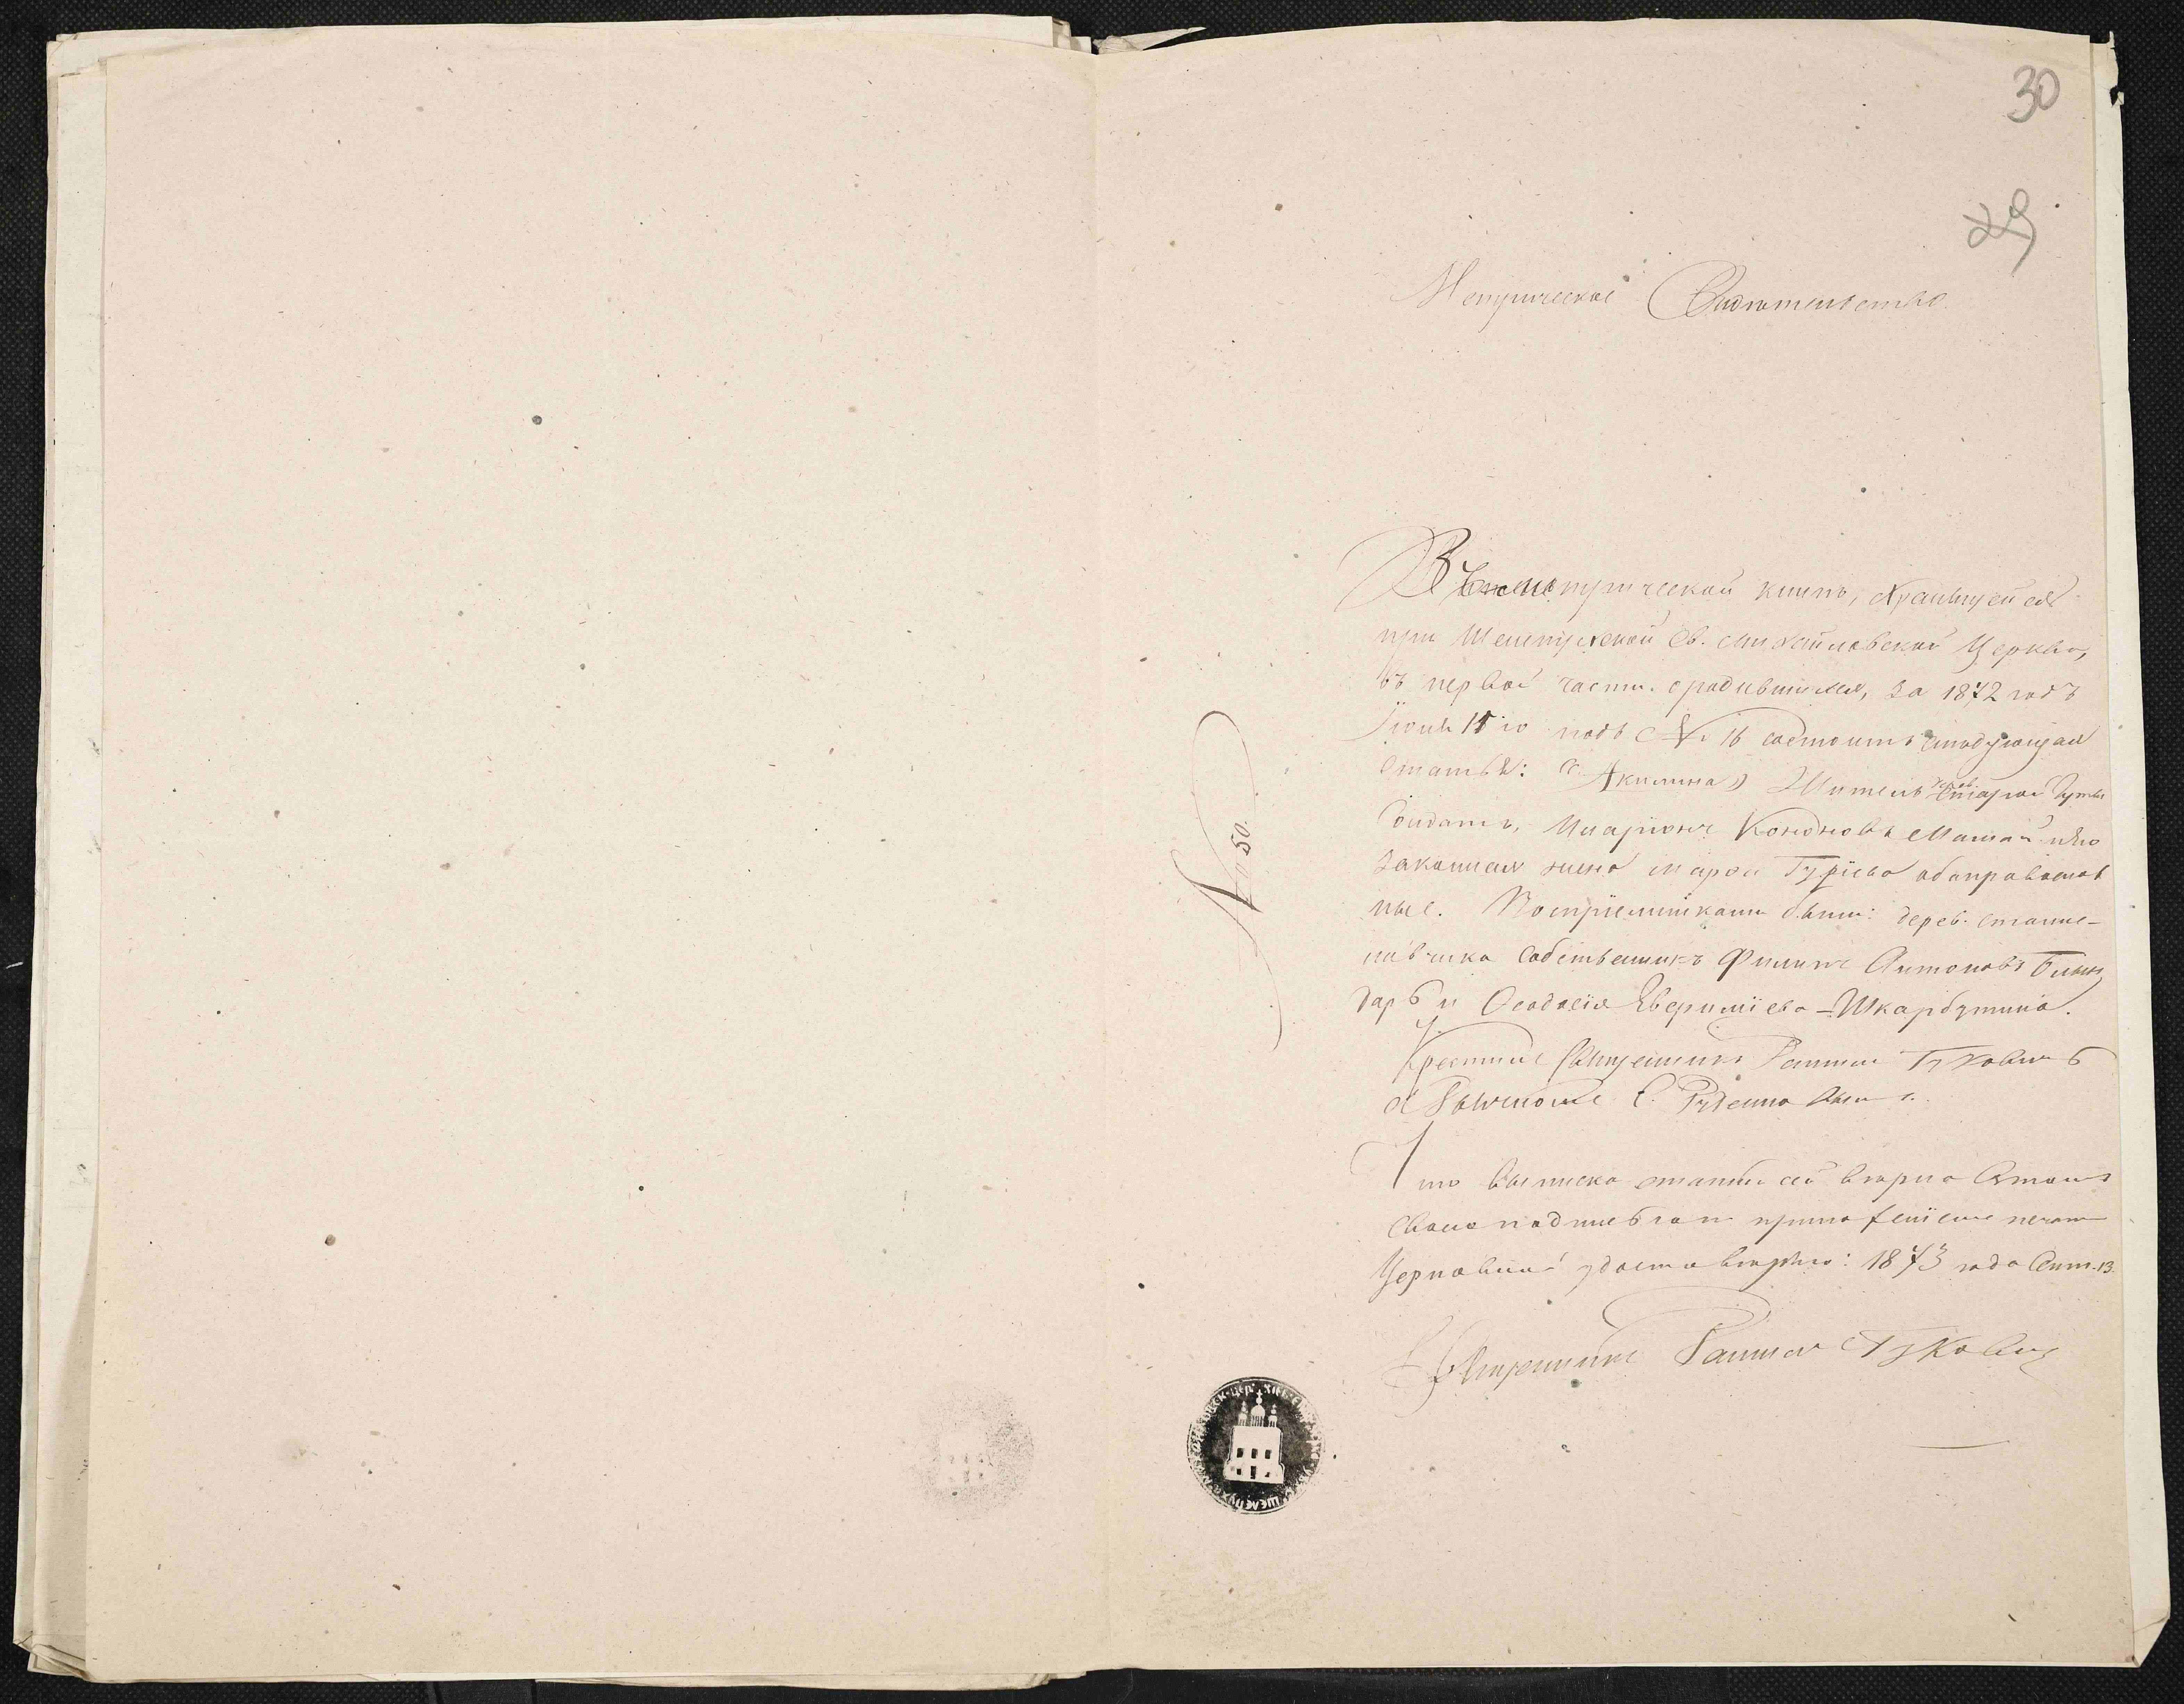 30
29
Метрическое Свидѣтельство.
№ 50.
Въ метрической книгѣ, хранящейся
при Шелепухской Св. Михайловской Церкви,
въ первой части о родившихся, за 1872 годъ
Іюня 15 го подъ № 16 состоитъ слѣдующая
Статья: „Акилина„ Житель дерев. Старой Гуты
Солдатъ, Иларіонъ Кондновъ и
законная жена его Гуріева оба православ
ные. Воспріемниками были: дерев.
собственникъ Филипъ Антоновъ Бонн
даръ и Ѳеодосія Евфиміева Шкарбутина.
Крестилъ Священникъ Гуковичъ
съ С.
Что выписка статьи сей вѣрна въ томъ
своеподписомъ приложеніемъ печати
Церковной удостовѣряю: 1873 года Сент. 13
Священникъ Гуковичъ
ШЕЛЕПУХ